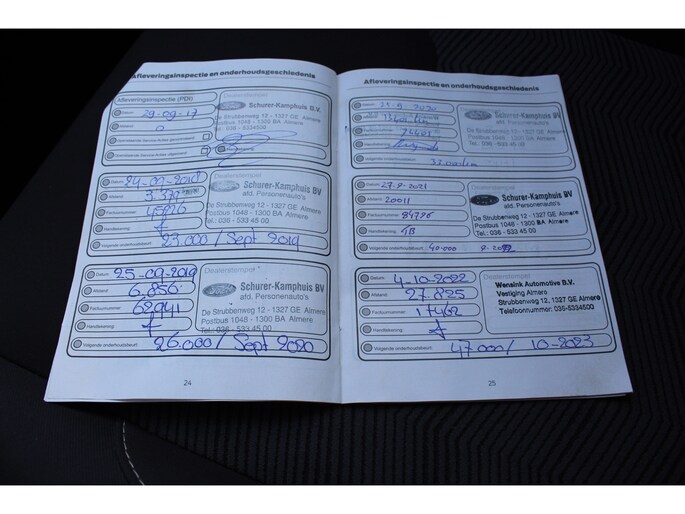 Afleveringsinspectie en onderhoudsgeschiedenis
Afleveringsinspectie (PDI)
Datum 29-09-17
Afstand 0
Ford
Schurer-Kamphuis B.V.
De Strubbenweg 12 - 1327 GE Almere
Postbus 1048 - 1300 BA Almere
Tel.: 036 - 5334500
Datum 24-09-2018
Afstand 3.379
Factuurnummer 45926
Handtekening
Volgende onderhoudsbeurt 23.000 / Sept 2019
Dealerstempel
Ford
Schurer-Kamphuis BV
afd. Personenauto's
De Strubbenweg 12 - 1327 GE Almere
Postbus 1048 - 1300 BA Almere
Tel.: 036 - 533 45 00
Datum 25-09-2019
Afstand 6.856
Factuurnummer 62941
Handtekening
Volgende onderhoudsbeurt 26.000 / Sept 2020
Dealerstempel
Ford
Schurer-Kamphuis BV
afd. Personenauto's
De Strubbenweg 12 - 1327 GE Almere
Postbus 1048 - 1300 BA Almere
Tel.: 036 - 533 45 00
24
Afleveringsinspectie en onderhoudsgeschiedenis
Datum
Afstand
Factuurnummer
Handtekening
Volgende onderhoudsbeurt
Ford
Schurer-Kamphuis BV
afd. Personenauto's
De Strubbenweg 12 - 1327 GE Almere
Postbus 1048 - 1300 BA Almere
Tel.: 036 - 533 45 00
Datum 27-9-2021
Afstand 20011
Factuurnummer 84726
Handtekening TB
Volgende onderhoudsbeurt 40.000 9-2022
Dealerstempel
Ford
Schurer-Kamphuis BV
afd. Personenauto's
De Strubbenweg 12 - 1327 GE Almere
Postbus 1048 - 1300 BA Almere
Tel.: 036 - 533 45 00
Datum 4-10-2022
Afstand 27.825
Factuurnummer 17462
Handtekening
Volgende onderhoudsbeurt 47.000 / 10-2023
Dealerstempel
Wensink Automotive B.V.
Vestiging Almere
Strubbenweg 12, 1327 GE Almere
Telefoonnummer: 036-5334500
25